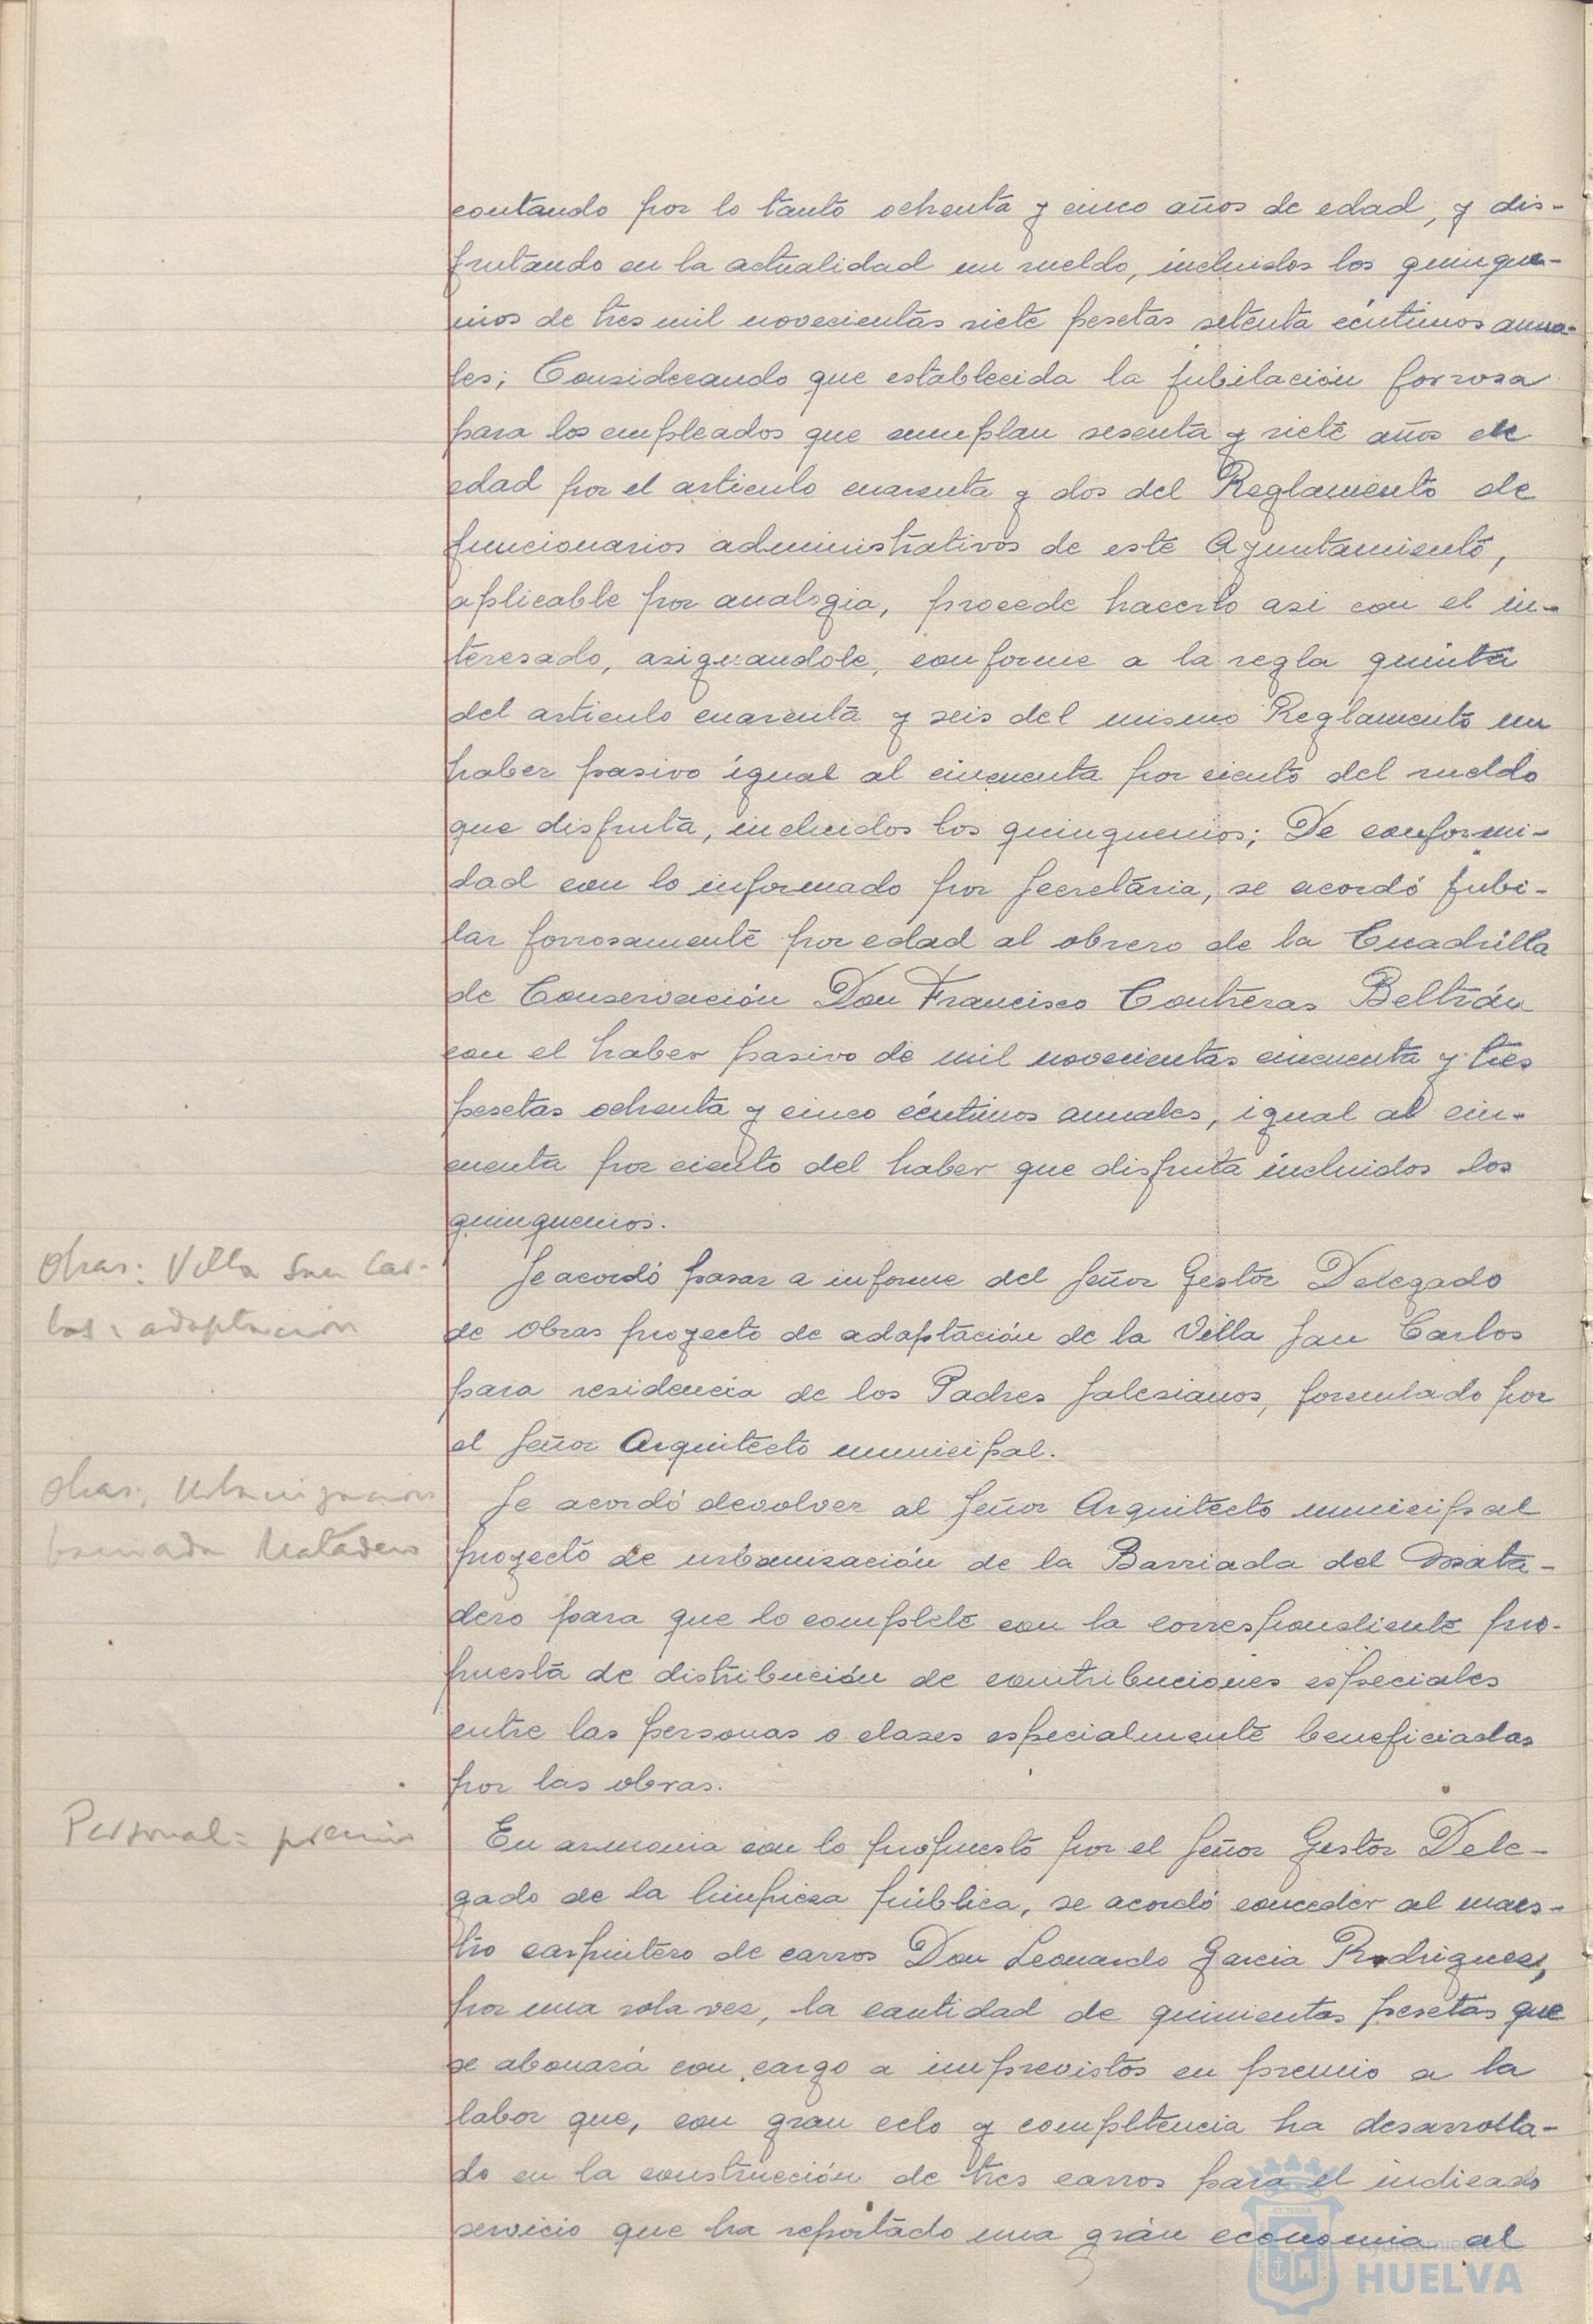 contando por lo tanto ochenta y cinco años de edad, y dis-
frutando en la actualidad un sueldo, incluidos los quinque-
nios de tres mil novecientas siete pesetas setenta céntimos anua-
les; Considerando que establecida la jubilación forzosa
para los empleados que cumplan sesenta y siete años de
edad por el articulo cuarenta y dos del Reglamento de
funcionarios administrativos de este Ayuntamiento,
aplicable por analogia, procede hacerlo asi con el in-
teresado, asignandole, conforme a la regla quinta
del articulo cuarenta y seis del mismo Reglamento un
haber pasivo igual al cincuenta por ciento del sueldo
que disfruta, incluidos los quinquenios; De conformi-
dad con lo informado por Secretaria, se acordó jubi-
lar forzosamente por edad al obrero de la Cuadrilla
de Conservación Don Francisco Contreras Beltrán
con el haber pasivo de mil novecientas cincuenta y tres
pesetas ochenta y cinco céntimos anuales, igual al cin-
cuenta por ciento del haber que disfruta incluidos los
quinquenios.
Obras: Villa San Car-
los: adaptación
Se acordó pasar a informe del Señor Gestor Delegado
de Obras proyecto de adaptación de la Villa San Carlos
para residencia de los Padres Salesianos, formulado por
el Señor Arquitecto municipal.
Obras: Urbanización
barriada Matadero
Se acordó devolver al Señor Arquitecto municipal
proyecto de urbanización de la Barriada del Mata-
dero para que lo complete con la correspondiente pro-
puesta de distribución de contribuciones especiales
entre las personas o clases especialmente beneficiadas
por las obras.
Personal: premio
En armonia con lo propuesto por el Señor Gestor Dele-
gado de la limpieza pública, se acordó conceder al maes-
tro carpintero de carros Don Leonardo Garcia Rodriguez,
por una sola vez, la cantidad de quinientas pesetas que
se abonará con cargo a imprevistos en premio a la
labor que, con gran celo y competencia ha desarrolla-
do en la construcción de tres carros para el indicado
servicio que ha reportado una grán economia al
Ayuntamiento
HUELVA